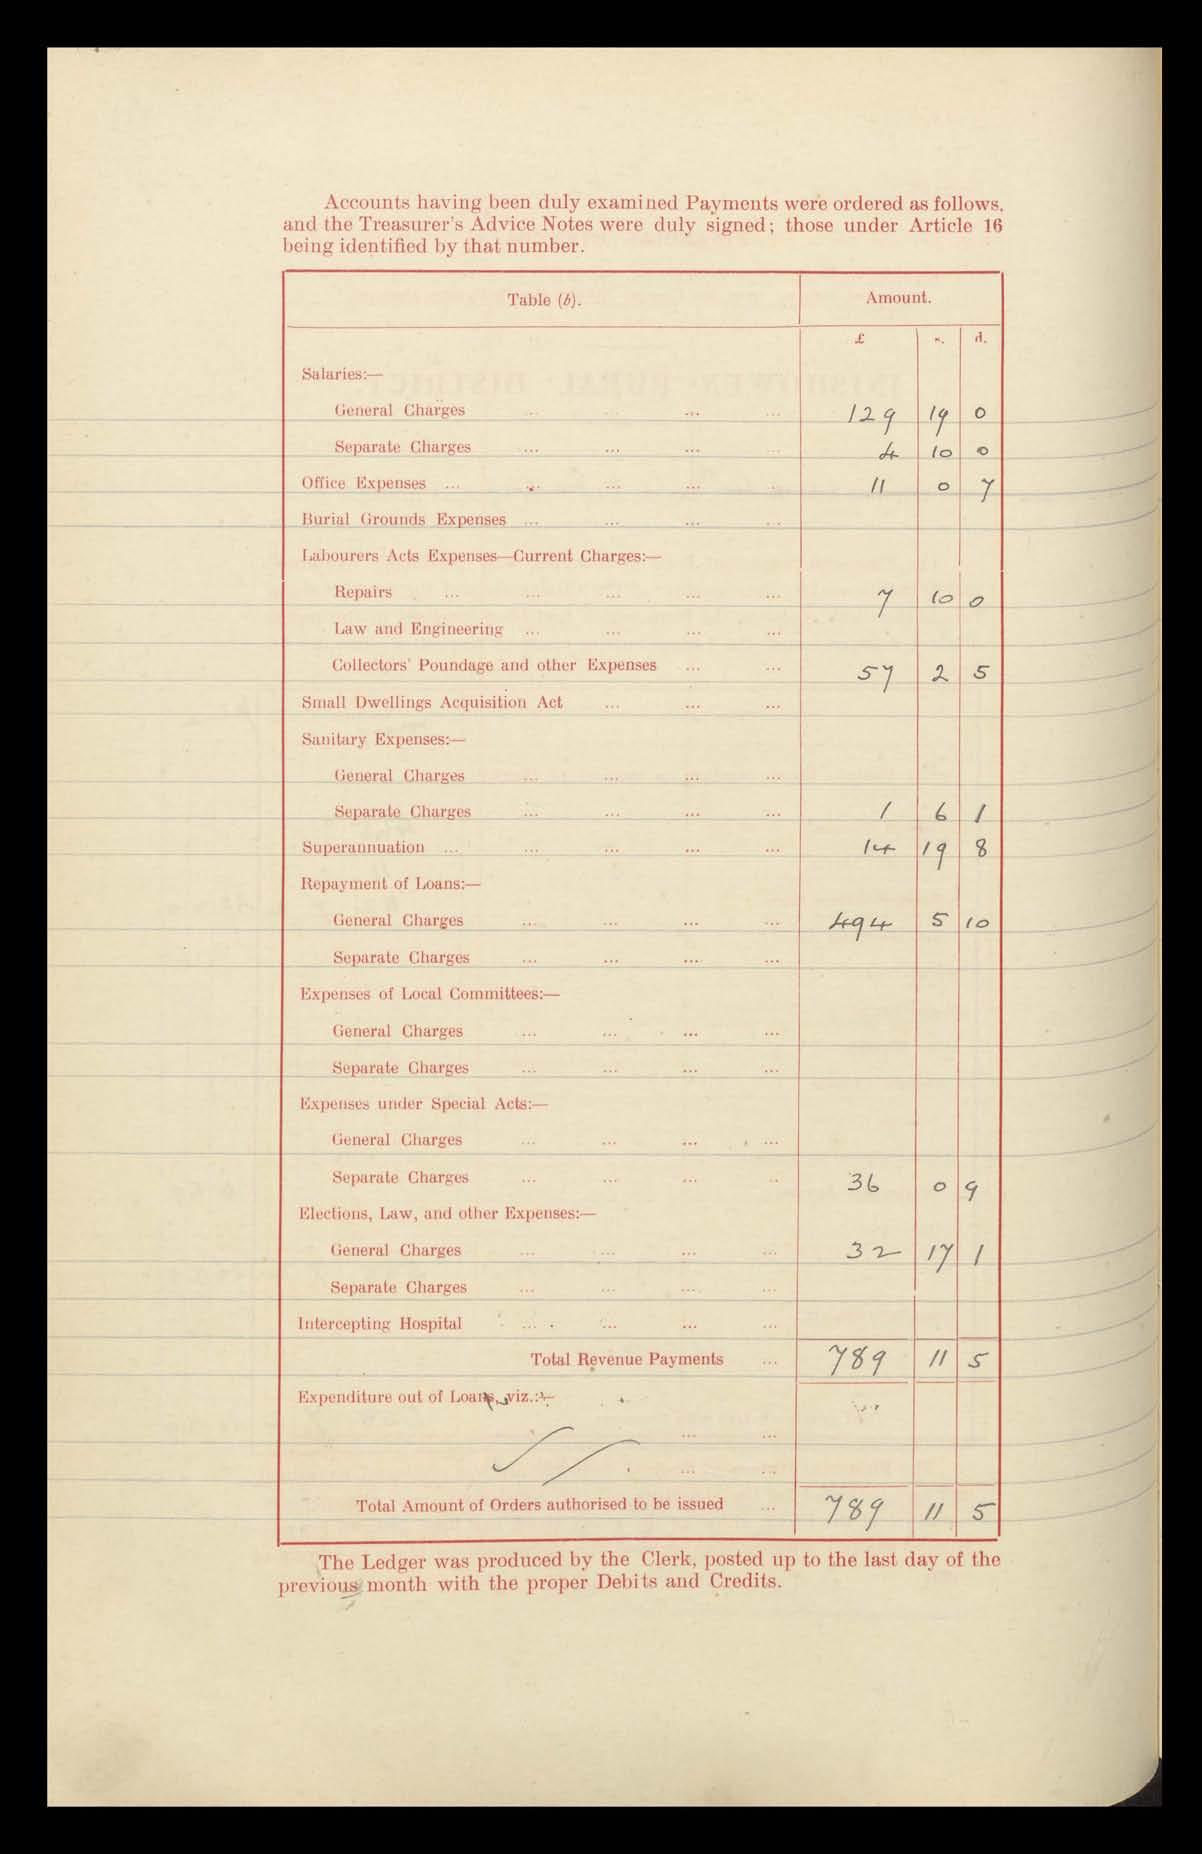 Accounts having been duly examined Payments were ordered as follows,
and the Treasurer's Advice Notes were duly signed; those under Article 16
being identified by that number.
Table (b). Amount.
£ s. d.
Salaries:—
General Charges ... ... ... ... 129 19 0
Separate Charges ... ... ... ... 4 10 0
Office Expenses ... ... ... ... ... 11 0 7
Burial Grounds Expenses ... ... ... ...
Labourers Acts Expenses—Current Charges:—
Repairs ... ... ... ... ... 7 10 0
Law and Engineering ... ... ... ...
Collectors' Poundage and other Expenses ... ... 57 2 5
Small Dwellings Acquisition Act ... ... ...
Sanitary Expenses:—
General Charges ... ... ... ...
Separate Charges ... ... ... ... 1 6 1
Superannuation ... ... ... ... ... 14 19 8
Repayment of Loans:—
General Charges ... ... ... ... 494 5 10
Separate Charges ... ... ... ...
Expenses of Local Committees:—
General Charges ... ... ... ...
Separate Charges ... ... ... ...
Expenses under Special Acts:—
General Charges ... ... ... ...
Separate Charges ... ... ... ... 36 0 9
Elections, Law, and other Expenses:—
General Charges ... ... ... ... 32 17 1
Separate Charges ... ... ... ...
Intercepting Hospital ... ... ... ...
Total Revenue Payments ... 789 11 5
Expenditure out of Loans, viz.:—
... ...
... ...
Total Amount of Orders authorised to be issued ... 789 11 5
The Ledger was produced by the Clerk, posted up to the last day of the
previous month with the proper Debits and Credits.